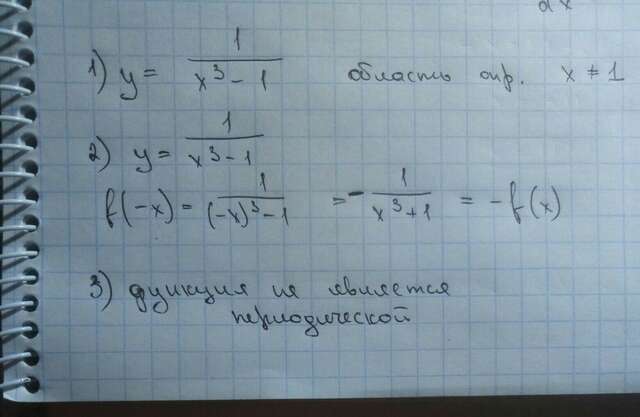 dx
1) y = 1/(x³ - 1) область опр. x ≠ 1
2) y = 1/(x³ - 1)
f(-x) = 1/((-x)³ - 1) = - 1/(x³ + 1) = -f(x)
3) функция не является
периодической